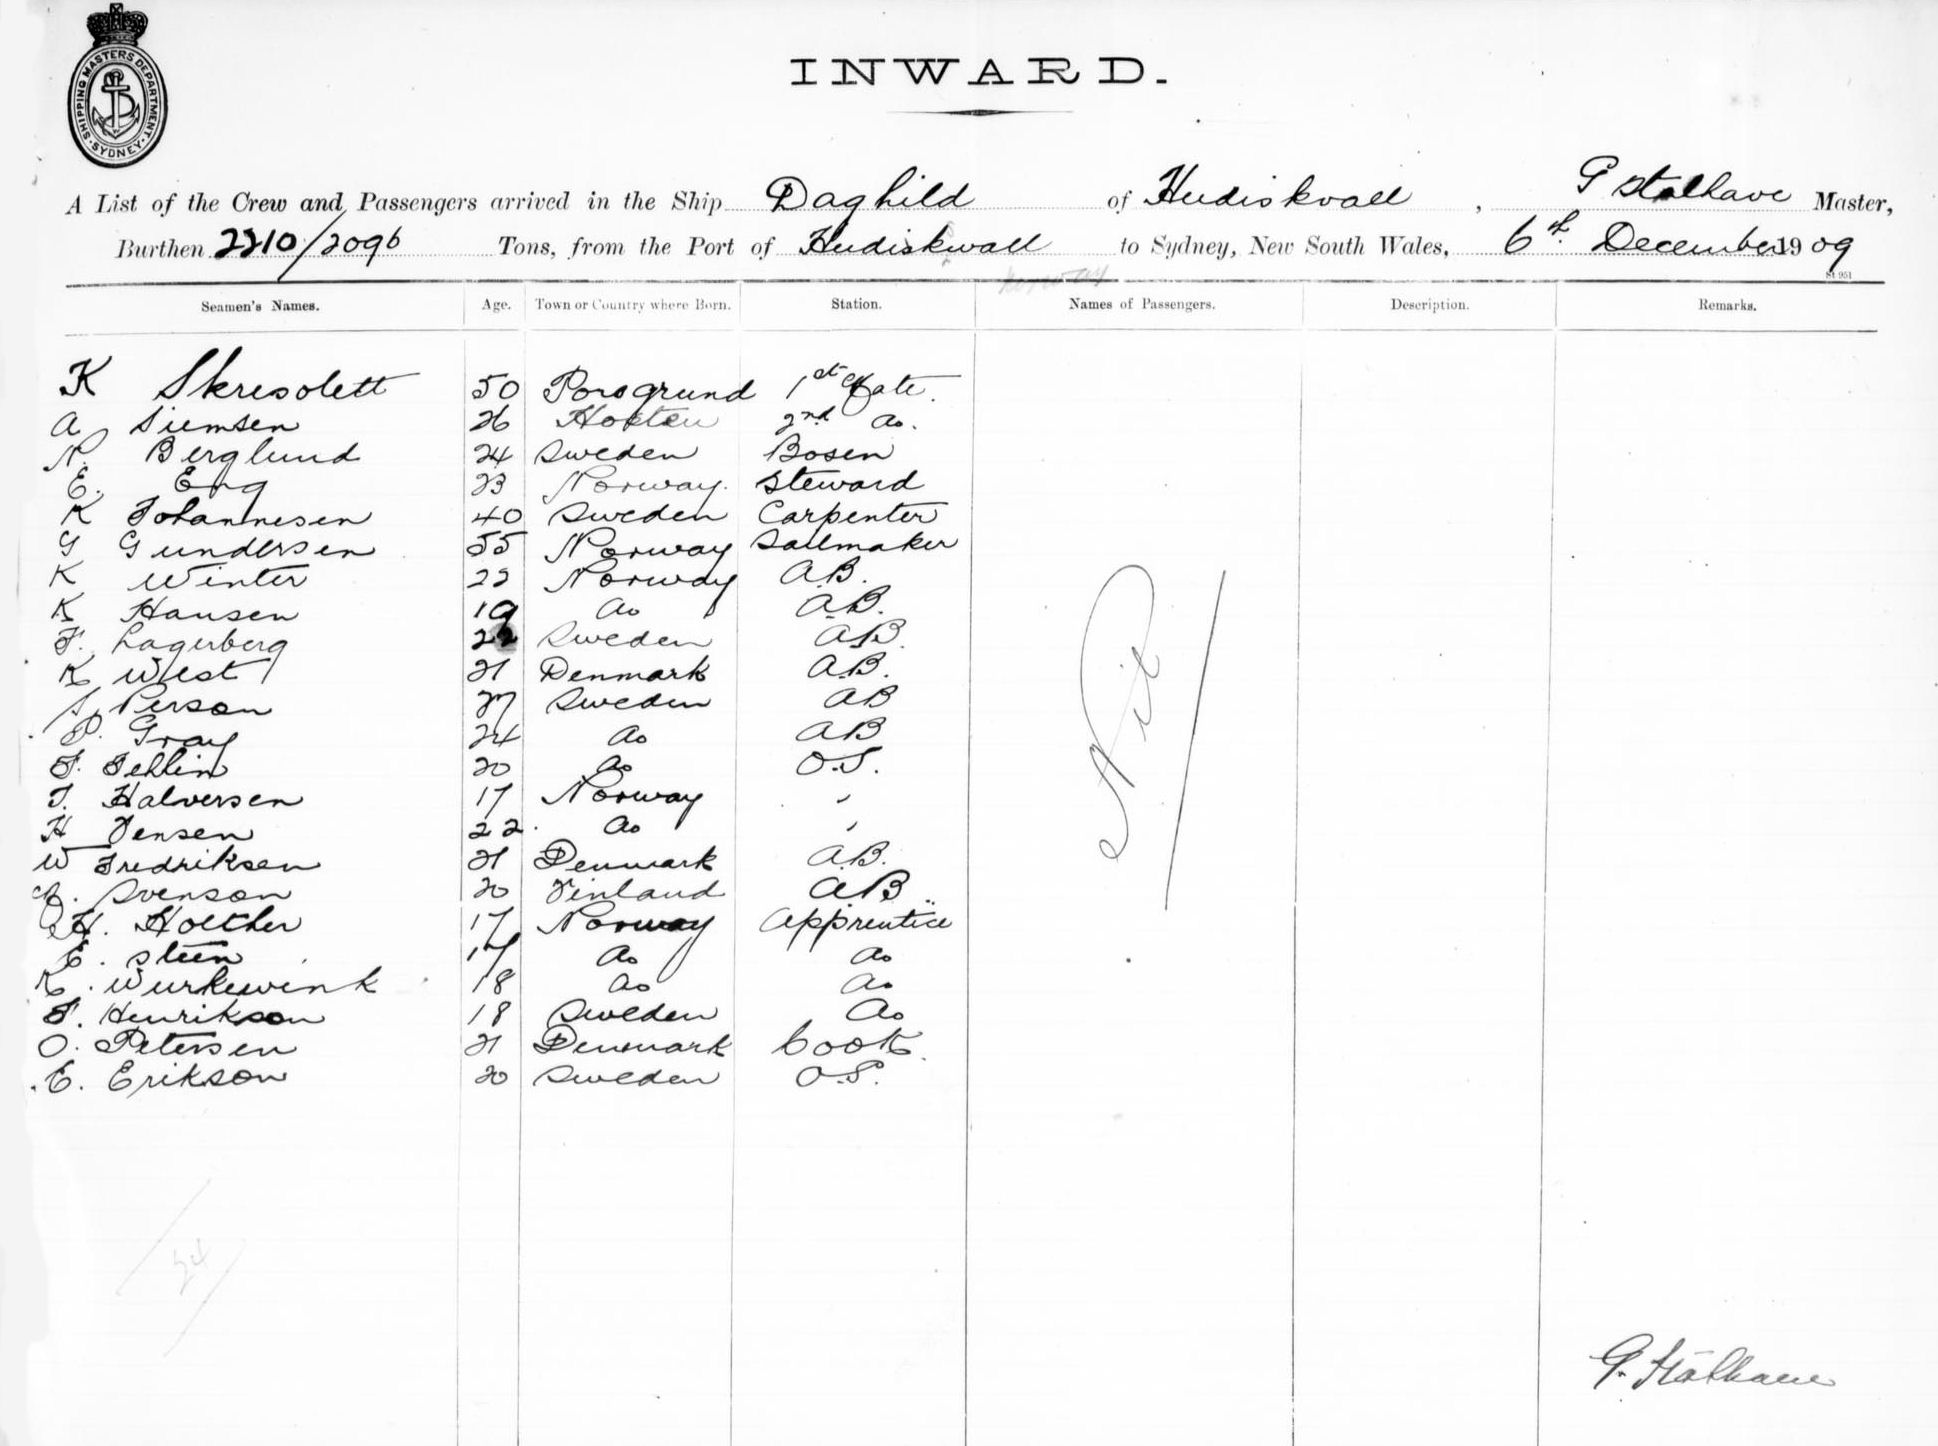 SHIPPING MASTERS DEPARTMENT. SYDNEY
INWARD.
A List of the Crew and Passengers arrived in the Ship Daghild of Hudiskvall, G Stalhave Master,
Burthen 2210/2096 Tons, from the Port of Hudiskwall to Sydney, New South Wales, 6th December 1909
St 951
Norway
Seamen's Names. Age. Town or Country where Born. Station. Names of Passengers. Description. Remarks.
K Skresolett 50 Porsgrund 1st Mate.
A Siemsen 26 Horten 2nd do.
N. Berglund 24 Sweden Bosen
E. Eng 23 Norway. Steward
K Johannesen 40 Sweden Carpenter
G Gundersen 55 Norway Sailmaker
K Winter 22 Norway A.B.
K Hansen 19 do A.B.
F. Lagerberg 22 Sweden A.B.
K West 21 Denmark A.B.
Person 27 Sweden AB
P. Gray 24 do AB
F. Fellin 20 do O.S.
T. Halversen 17 Norway "
H Jensen 22. do "
W Fredriksen 21 Denmark A.B.
Svenson 20 Finland AB
H. Holther 17 Norway Apprentice
E. Steen 17 do do
K. Wurkewink 18 do do
F. Henrikson 18 Sweden do
O. Petersen 21 Denmark Cook.
E. Erikson 20 Sweden O.S.
Nil
24
G. Stålhane